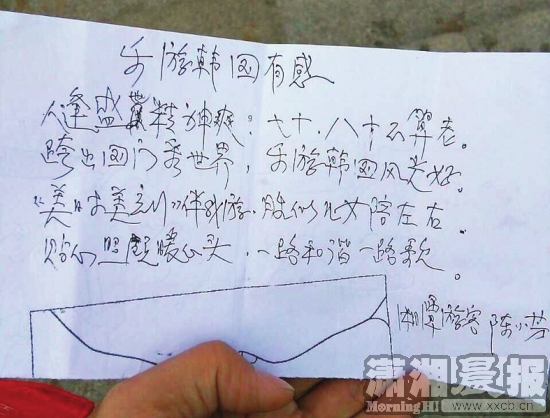 乐游韩国有感
人逢盛世精神爽，七十、八十不算老。
跨出国门看世界，乐游韩国风光好。
《美日求美之川》伴我游，胜似儿女陪左右
贴心照顾暖心头，一路和谐一路歌。
湘潭游客 陈小芳
潇湘晨报
MorningH
www.xxcb.cn